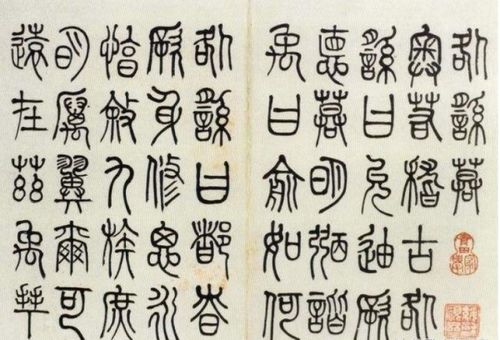 咎繇謩
粵若稽古咎
繇曰允迪厥
悳謩明弼諧
禹曰俞如何
咎繇曰都昚
厥身修思永
惇敘九族庶
明厲翼爾可
遠在茲禹拜